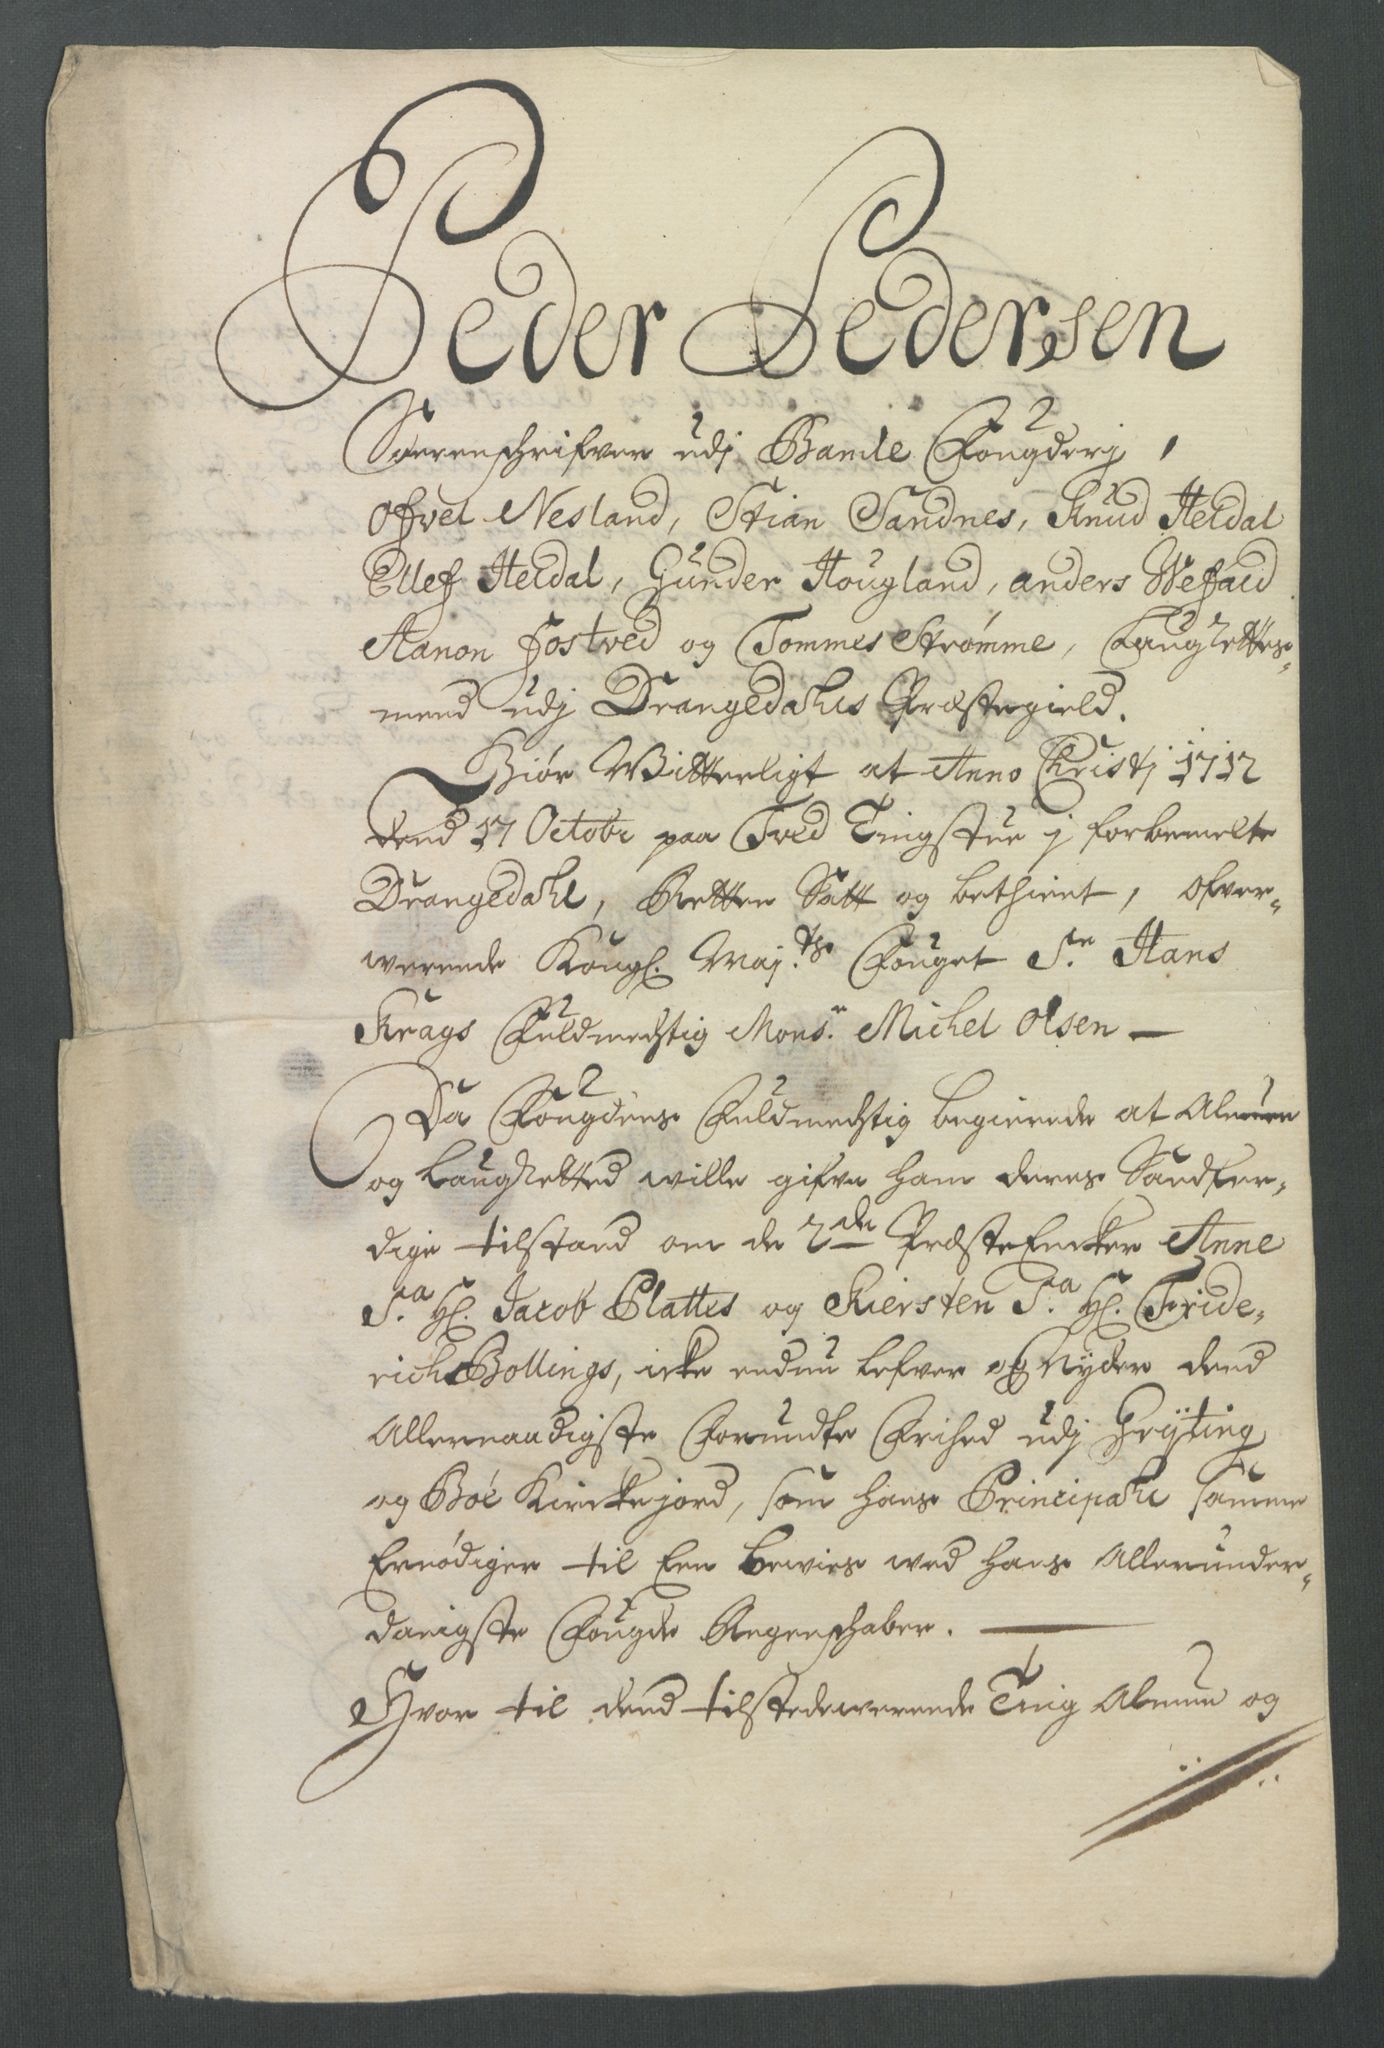 Peder Pedersen
Sorenschrifver udj Bamle Fougderj,
Ofvel Nesland, Stian Sandnes, Knud Heldal
Ellef Heldal, Gunder Hougland, anders Wefald
Aanon Jostved og Tommes Strømme, LaugRettes-
mend udj Drangedahls Præstegield.
Giør Witterligt at Anno Christj 1712
dend 17 Octobr paa Tved Tingstue j forbemelte
Drangedahl, Retten Satt og bethient, ofver-
werende Kongl. Maj.ts Fouget Sr. Hans
Krags Fuldmechtig Monsr. Michel Olsen —
Da Fougdens Fuldmechtig begierede at Almuen
og LaugRetted wille gifve ham deres Sandfer-
dige tilstand om de 2de PræsteEncker Anne
Sa. Hl. Jacob Plattes og Kiersten Sa. Hl. Fride-
rich Bollings, icke endnu lefver og Nyder dend
Allernaadigste Forundte Frihed udj Gryting
og Böe Kirckejord, som hans Principahl samme
Ernödiger til Een Bewies wed hans Allerunder-
danigste Fougde Regenschaber. —
Hvor til dend tilstedewerende Ting Almue og